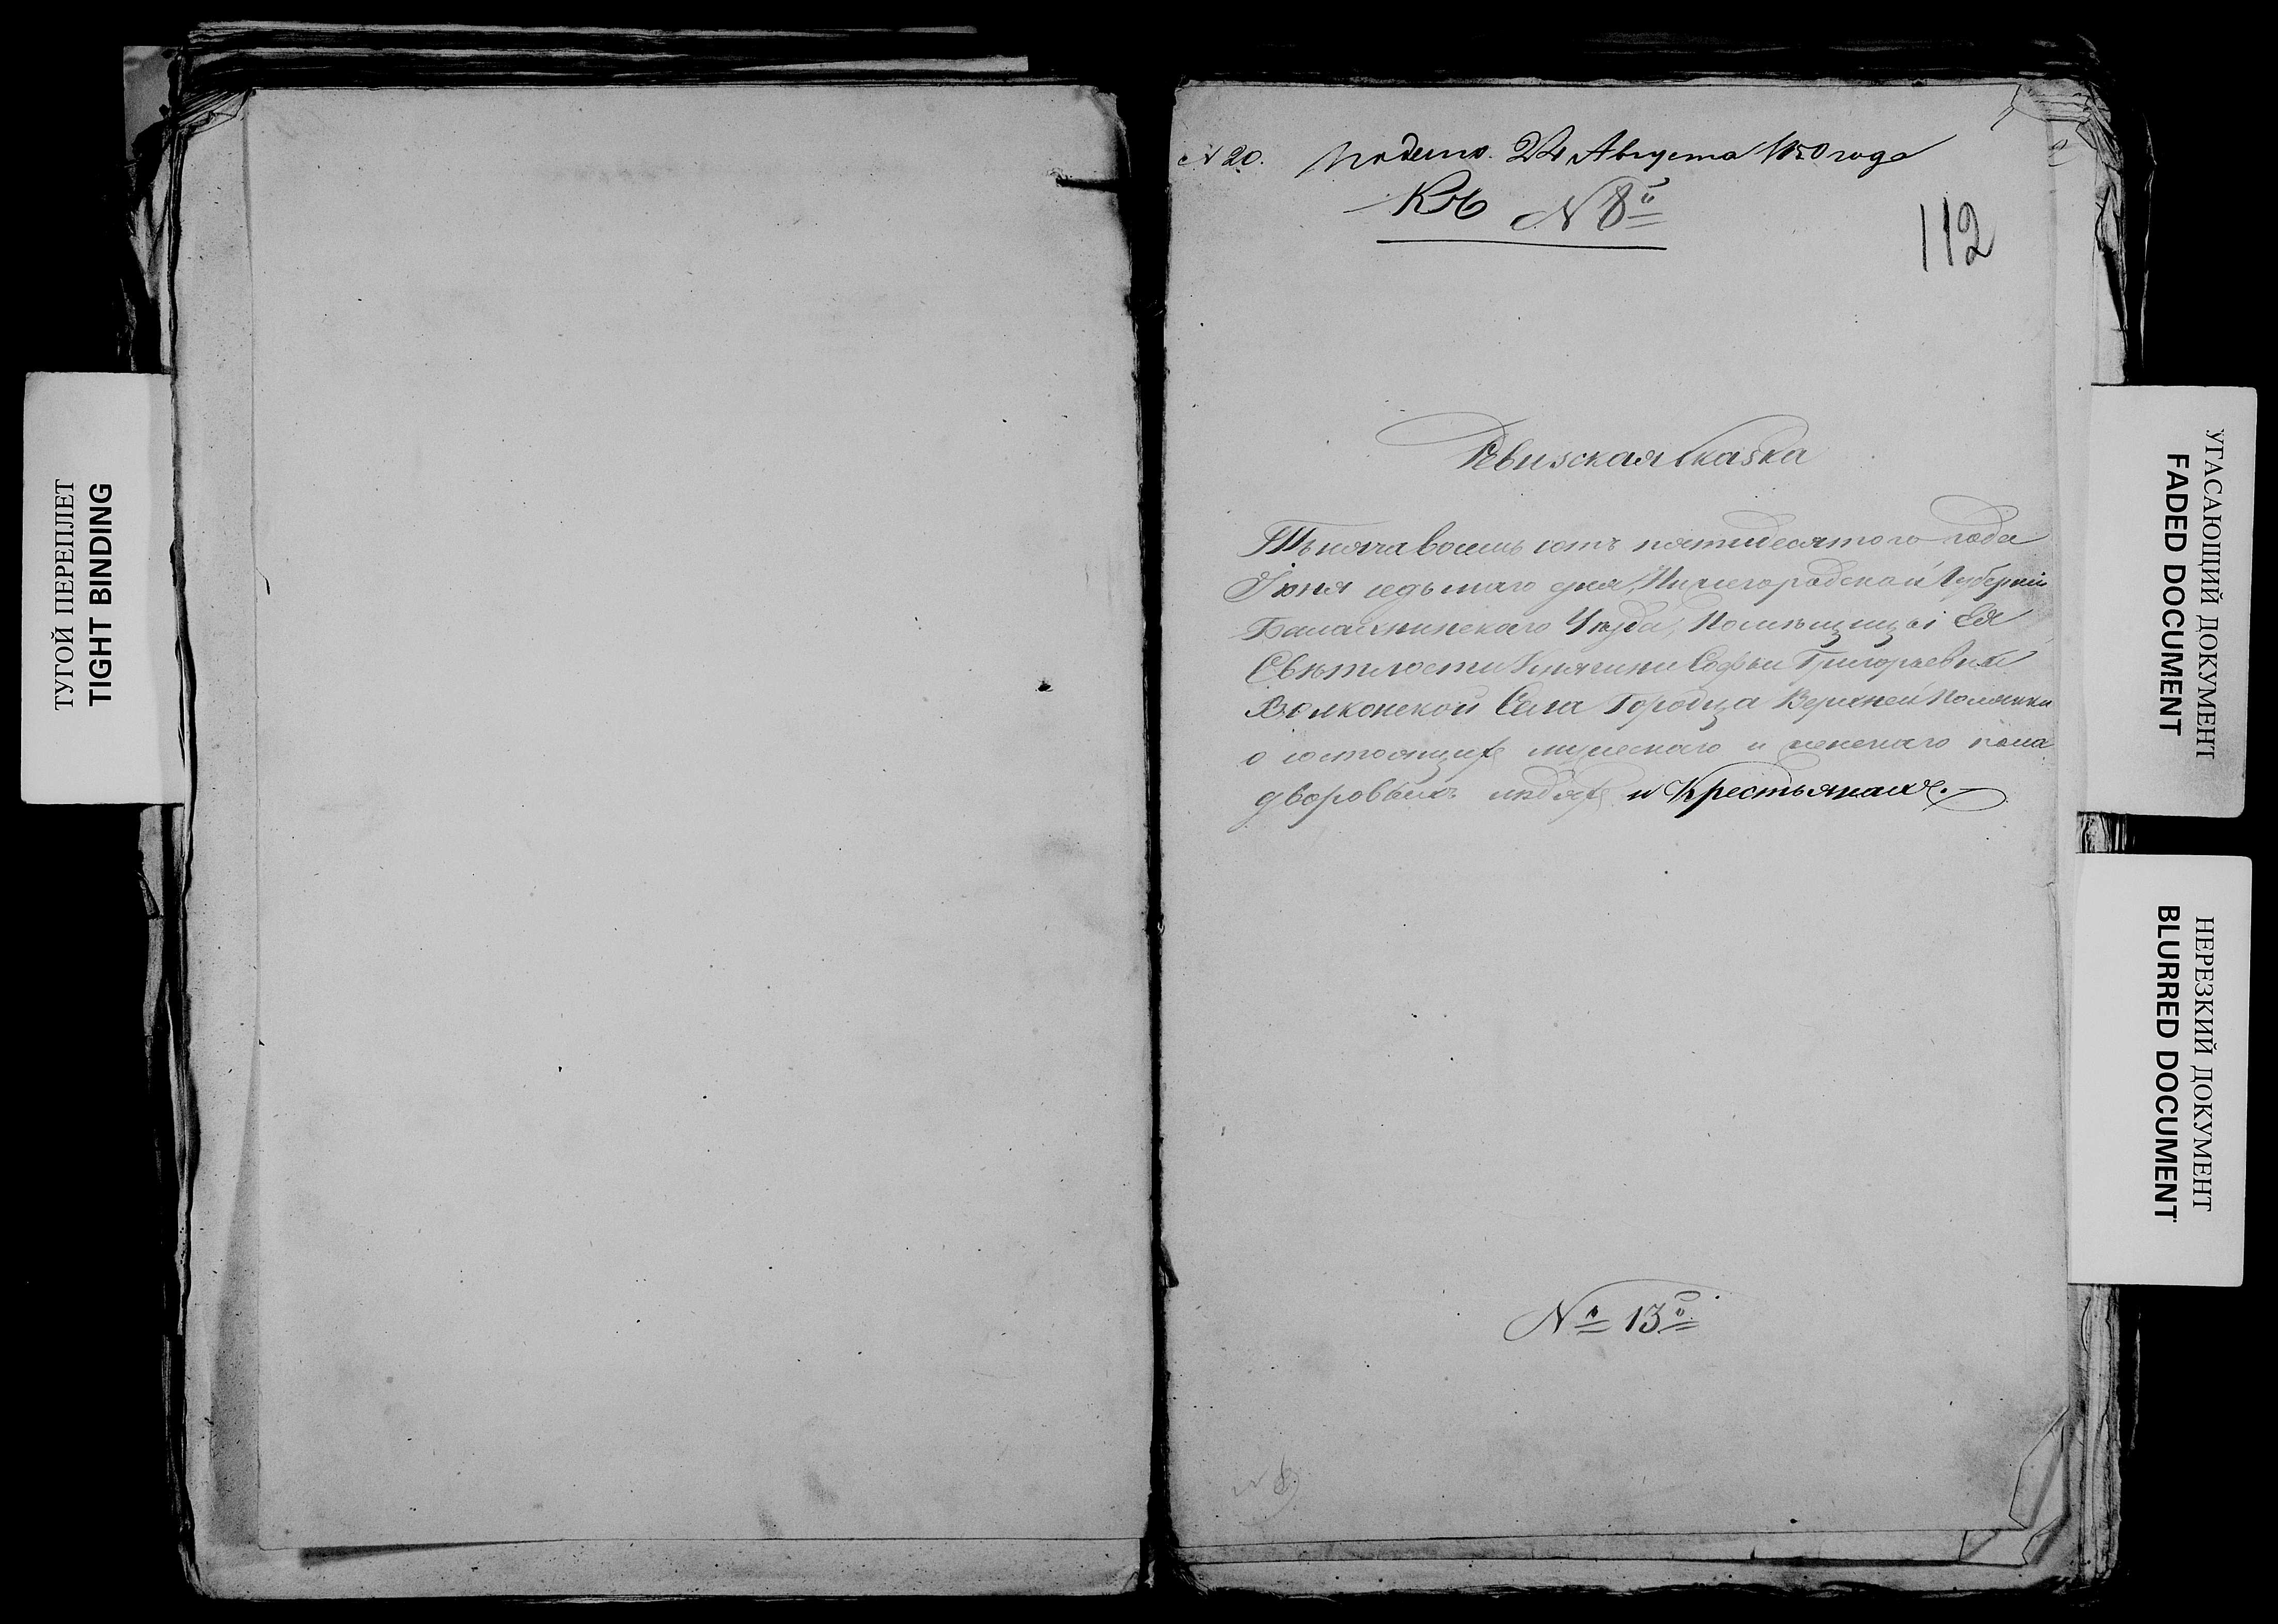 ТУГОЙ ПЕРЕПЛЕТ
TIGHT BINDING
N 20. Подано. 24 Августа 1850 года
Къ N 8й
112
Ревизская Сказка
Тысяча восемь сотъ пятидесятого года
Іюня седьмаго дня, Нижегородской Губерніи
Балахнинскаго Уѣзда, Помѣщицы Ея
Свѣтлости Княгини Софьи Григорьевны
Волконской Села Городца Верхней Полянки
о состоящихъ мужескаго и женскаго пола
дворовыхъ людяхъ и Крестьянахъ.
№ 13й
УГАСАЮЩИЙ ДОКУМЕНТ
FADED DOCUMENT
НЕРЕЗКИЙ ДОКУМЕНТ
BLURRED DOCUMENT